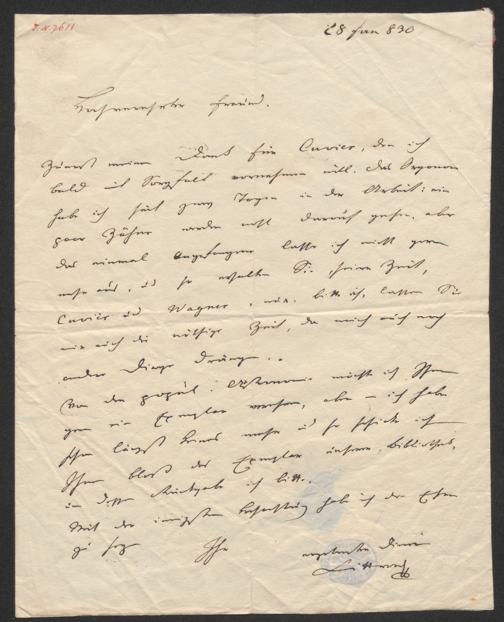 I.N. 7611
28 Jan 830
Hochverehrter Freund.
Zuerst meinen Dank für Cuvier, den ich
bald mit Sorgfalt vornehmen will. Das
habe ich seit zwey Tagen in der Arbeit: ein
paar werden wohl darauf gehen, aber
das einmal Angefangene lasse ich nicht gern
mehr aus, und so erhalten Sie seiner Zeit,
Cuvier und Wagner, nur bitte ich, lassen Sie
mir auch die nöthige Zeit, da mich auch noch
andere Dinge drängen.
Von der populä. Astronomie möchte ich Ihnen
gern ein Exemplar senden, aber ich habe
schon längst keines mehr und so schicke ich
Ihnen bloß das Exemplar unserer Bibliothek,
um dessen Rückgabe ich bitte.
Mit der innigsten Hochachtung hab ich die Ehre
zu seyn Ihr
ergebenster Diener
Littrow